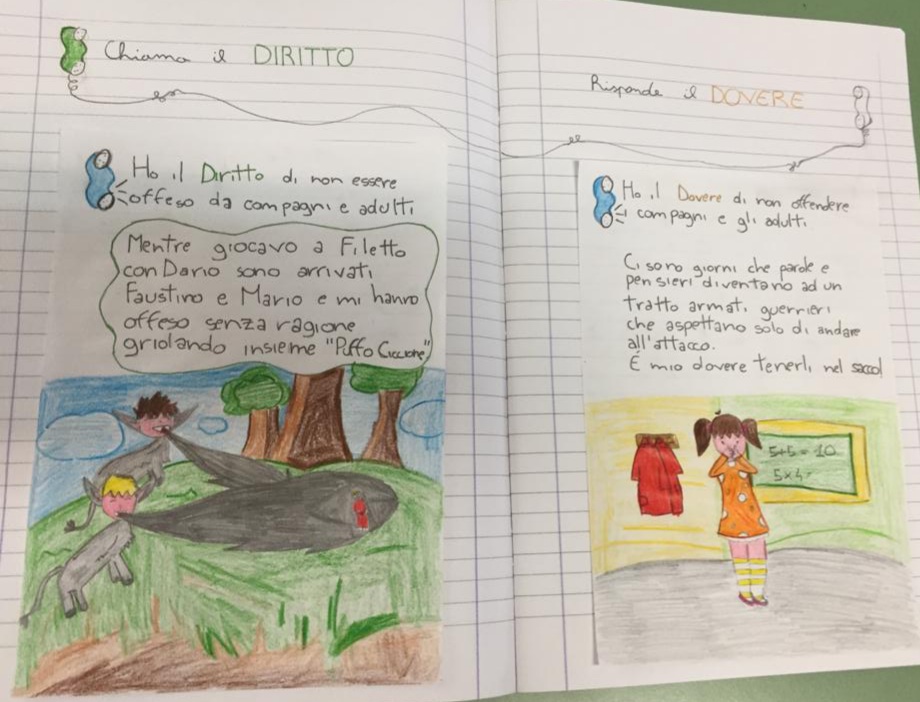 Chiama il DIRITTO
Ho il Diritto di non essere
offeso da compagni e adulti
Mentre giocavo a Filetto
con Dario sono arrivati
Faustino e Mario e mi hanno
offeso senza ragione
griolando insieme "Puffo Ciccione"
Risponde il DOVERE
Ho il Dovere di non offendere
compagni e gli adulti
Ci sono giorni che parole e
pensieri diventano ad un
tratto armati, guerrieri
che aspettano solo di andare
all'attacco.
É mio dovere tenerli nel sacco!
5+5 = 10
5x4=